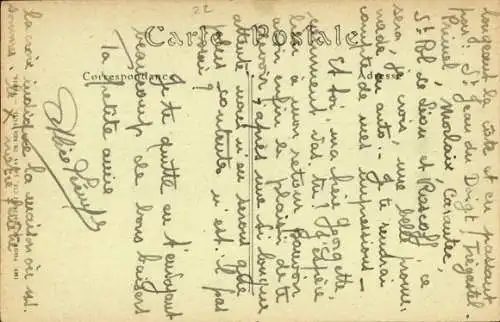 Carte Postale
Correspondance
Adresse
22
longeant la côte et en passant
par St Jean du Doigt, Trégastel
Primel, Morlaix, Carantec,
St Pol de Léon et Roscoff, ce
sera, je crois, une belle prome-
nade en auto - Je te rendrai
compte de mes impressions -
Et toi, ma chère Georgette,
comment vas-tu? J'espère
bien à mon retour pouvoir
avoir enfin le plaisir de te
revoir, après une si longue
attente nous n'en serons que
plus contentes n'est-il pas
vrai?
Je te quitte en t'envoyant
beaucoup de bons baisers
Ta petite amie
la croix indique la maison où est